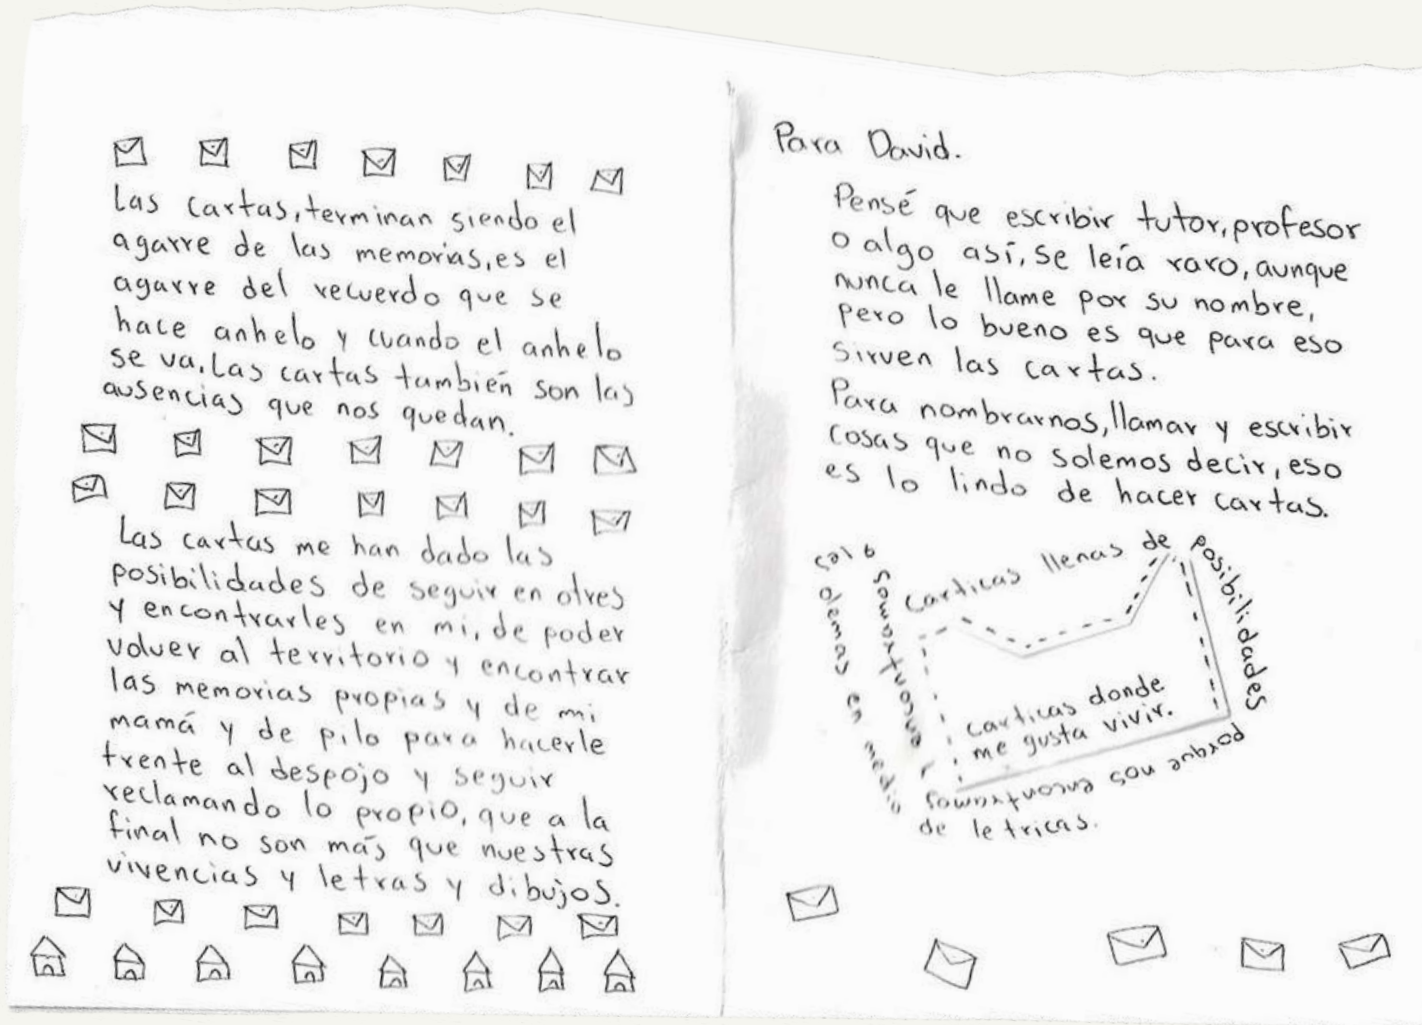 Las cartas, terminan siendo el
agarre de las memorias, es el
agarre del recuerdo que se
hace anhelo y cuando el anhelo
se va. Las cartas también son las
ausencias que nos quedan.
Las cartas me han dado las
posibilidades de seguir en otres
y encontrarles en mi, de poder
volver al territorio y encontrar
las memorias propias y de mi
mamá y de pilo para hacerle
frente al despojo y seguir
reclamando lo propio, que a la
final no son más que nuestras
vivencias y letras y dibujos.
Para David.
Pensé que escribir tutor, profesor
o algo así, se leía raro, aunque
nunca le llame por su nombre,
pero lo bueno es que para eso
sirven las cartas.
Para nombrarnos, llamar y escribir
cosas que no solemos decir, eso
es lo lindo de hacer cartas.
Carticas llenas de
posibilidades
porque nos encontramos
y encontramos a les
demas en medio
de letricas.
carticas donde
me gusta vivir.